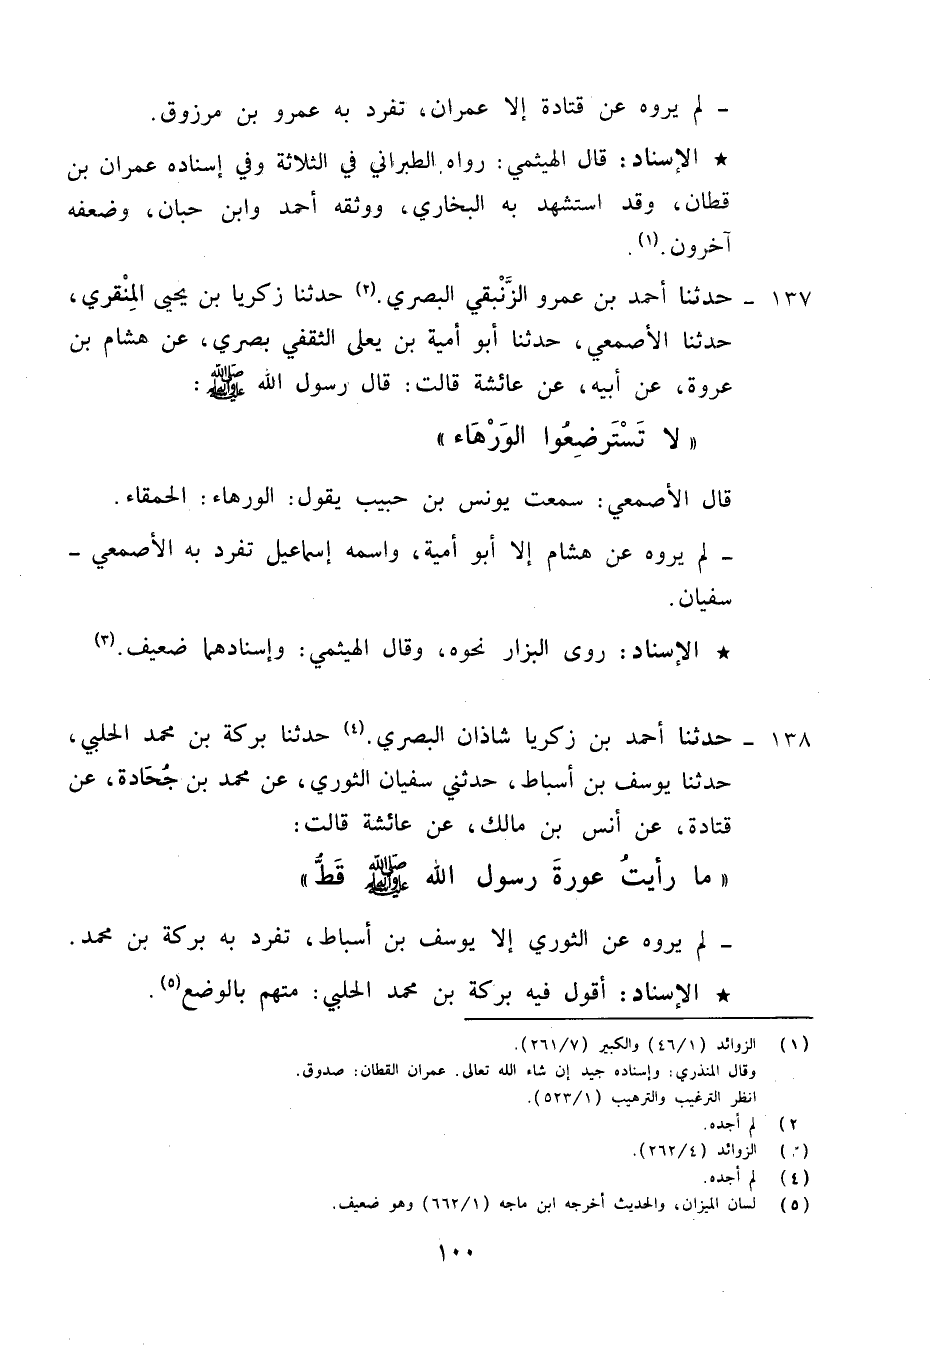 ـ لم يروه عن قتادة إلا عمران، تفرد به عمرو بن مرزوق.
★ الإسناد: قال الهيثمي: رواه الطبراني في الثلاثة وفي إسناده عمران بن
قطان، وقد استشهد به البخاري، ووثقه أحمد وابن حبان، وضعفه
آخرون.(١).
١٣٧ ـ حدثنا أحمد بن عمرو الزَّنْبقي البصري.(٢) حدثنا زكريا بن يحيى المِنْقري،
حدثنا الأصمعي، حدثنا أبو أمية بن يعلى الثقفي بصري، عن هشام بن
عروة، عن أبيه، عن عائشة قالت: قال رسول الله ﷺ:
« لا تَسْتَرضِعُوا الوَرْهَاء »
قال الأصمعي: سمعت يونس بن حبيب يقول: الورهاء: الحمقاء.
ـ لم يروه عن هشام إلا أبو أمية، واسمه إسماعيل تفرد به الأصمعي ـ
سفيان.
★ الإسناد: روى البزار نحوه، وقال الهيثمي: وإسنادهما ضعيف.(٣)
١٣٨ ـ حدثنا أحمد بن زكريا شاذان البصري.(٤) حدثنا بركة بن محمد الحلبي،
حدثنا يوسف بن أسباط، حدثني سفيان الثوري، عن محمد بن جُحَادة، عن
قتادة، عن أنس بن مالك، عن عائشة قالت:
« ما رأيتُ عورةَ رسول الله ﷺ قَطُّ »
ـ لم يروه عن الثوري إلا يوسف بن أسباط، تفرد به بركة بن محمد.
★ الإسناد: أقول فيه بركة بن محمد الحلبي: متهم بالوضع(٥).
(١) الزوائد (٤٦/١) والكبير (٢٦١/٧).
وقال المنذري: وإسناده جيد إن شاء الله تعالى. عمران القطان: صدوق.
انظر الترغيب والترهيب (٥٢٣/١).
٢) لم أجده.
(٣) الزوائد (٢٦٢/٤).
(٤) لم أجده.
(٥) لسان الميزان، والحديث أخرجه ابن ماجه (٦٦٢/١) وهو ضعيف.
١٠٠